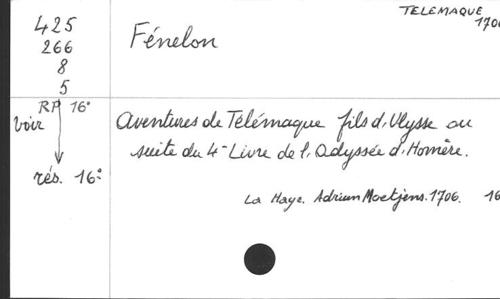 TELEMAQUE
1706
425
266
8
5
Fénelon
RP 16°
voir
rés. 16°
Aventures de Télémaque fils d'Ulysse ou
suite du 4e Livre de l'Odyssée d'Homère.
La Haye. Adrian Moetjens. 1706. 16